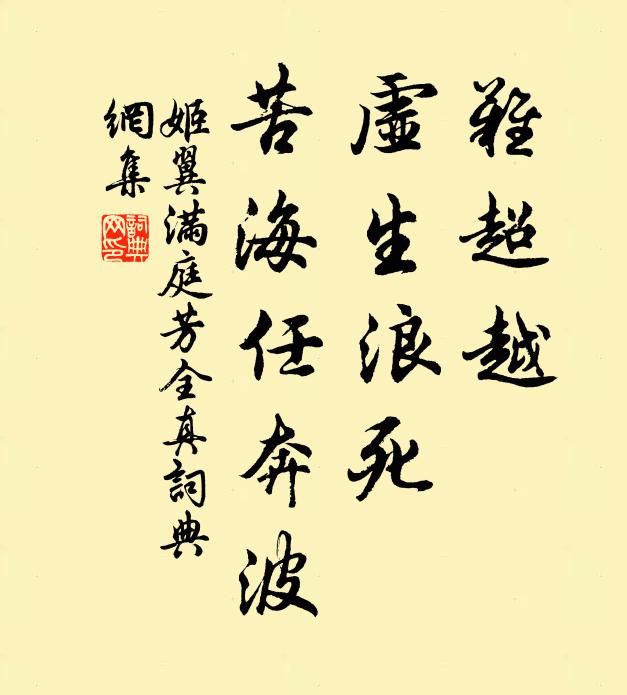 難超越
虛生浪死
苦海任奔波
姬翼滿庭芳全真詞典
網集
詞典
网印